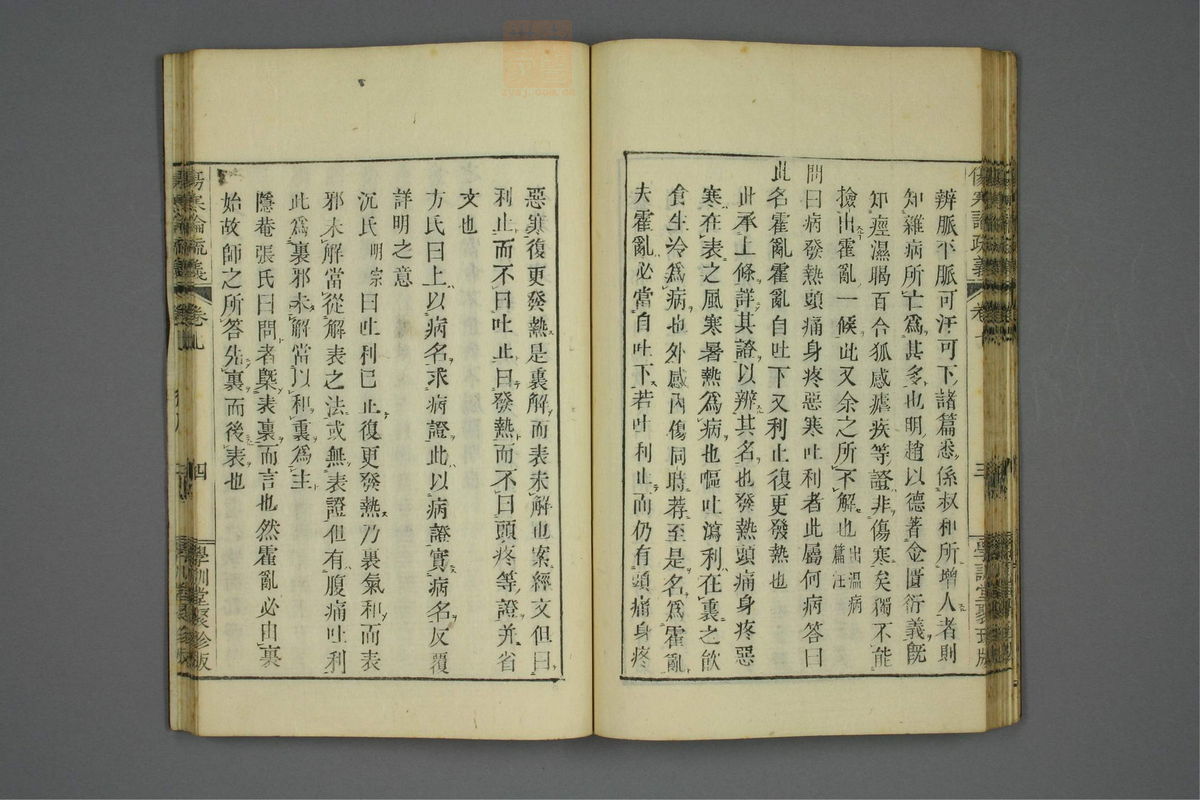 辨脈平脈可汗可下諸篇悉係叔和所增人者則
知雜病所亡爲甚多也明趙以德著金匱衍義旣
知痙濕暍百合狐惑瘧疾等證非傷寒矣獨不能
撿出霍亂一候此又余之所不解也
出温病
篇注
問曰病發熱頭痛身疼惡寒吐利者此屬何病答曰
此名霍亂霍亂自吐下又利止復更發熱也
此承上條詳其證以辨其名也發熱頭痛身疼惡
寒在表之風寒暑熱爲病也嘔吐瀉利在裏之飮
食生冷爲病也外感內傷同時荐至是名爲霍亂
夫霍亂必當自吐下若吐利止而仍有頭痛身疼
惡寒復更發熱是裏解而表未解也案經文但曰
利止而不曰吐止曰發熱而不曰頭疼等證并省
文也
方氏曰上以病名求病證此以病證實病名反覆
詳明之意
沉氏
明
宗
曰吐利已止復更發熱乃裏氣和而表
邪未解當從解表之法或無表證但有腹痛吐利
此爲裏邪未解當以和裏爲主
隱菴張氏曰問者槩表裏而言也然霍亂必由裏
始故師之所答先裏而後表也
傷寒論疏義
卷七
四
學訓堂聚珍版